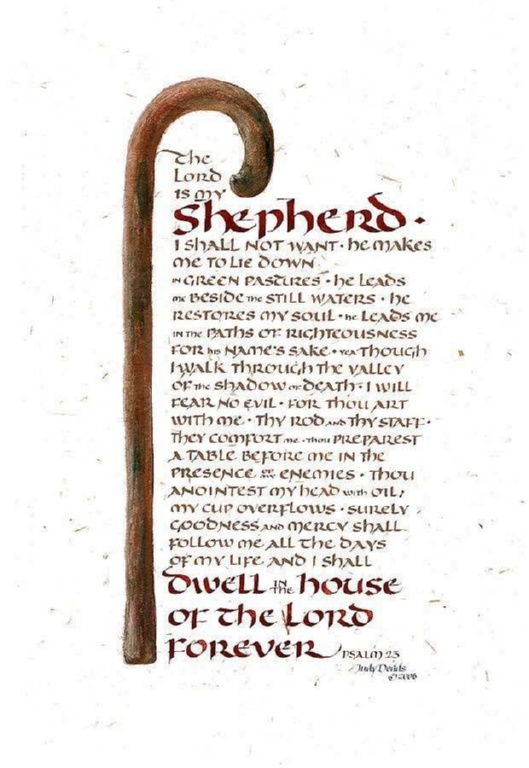 The
Lord
is my
Shepherd ·
I shall not want · he makes
me to lie down
in green pastures · he leads
me beside the still waters · he
restores my soul · he leads me
in the paths of righteousness
for his name's sake · yea though
I walk through the valley
of the shadow of death · I will
fear no evil · for thou art
with me · thy rod and thy staff ·
they comfort me · thou preparest
a table before me in the
presence of my enemies · thou
anointest my head with oil,
my cup overflows · surely
goodness and mercy shall
follow me all the days
of my life and I shall
dwell in the house
of the Lord
forever Psalm 23
Judy Dodds
© 2006